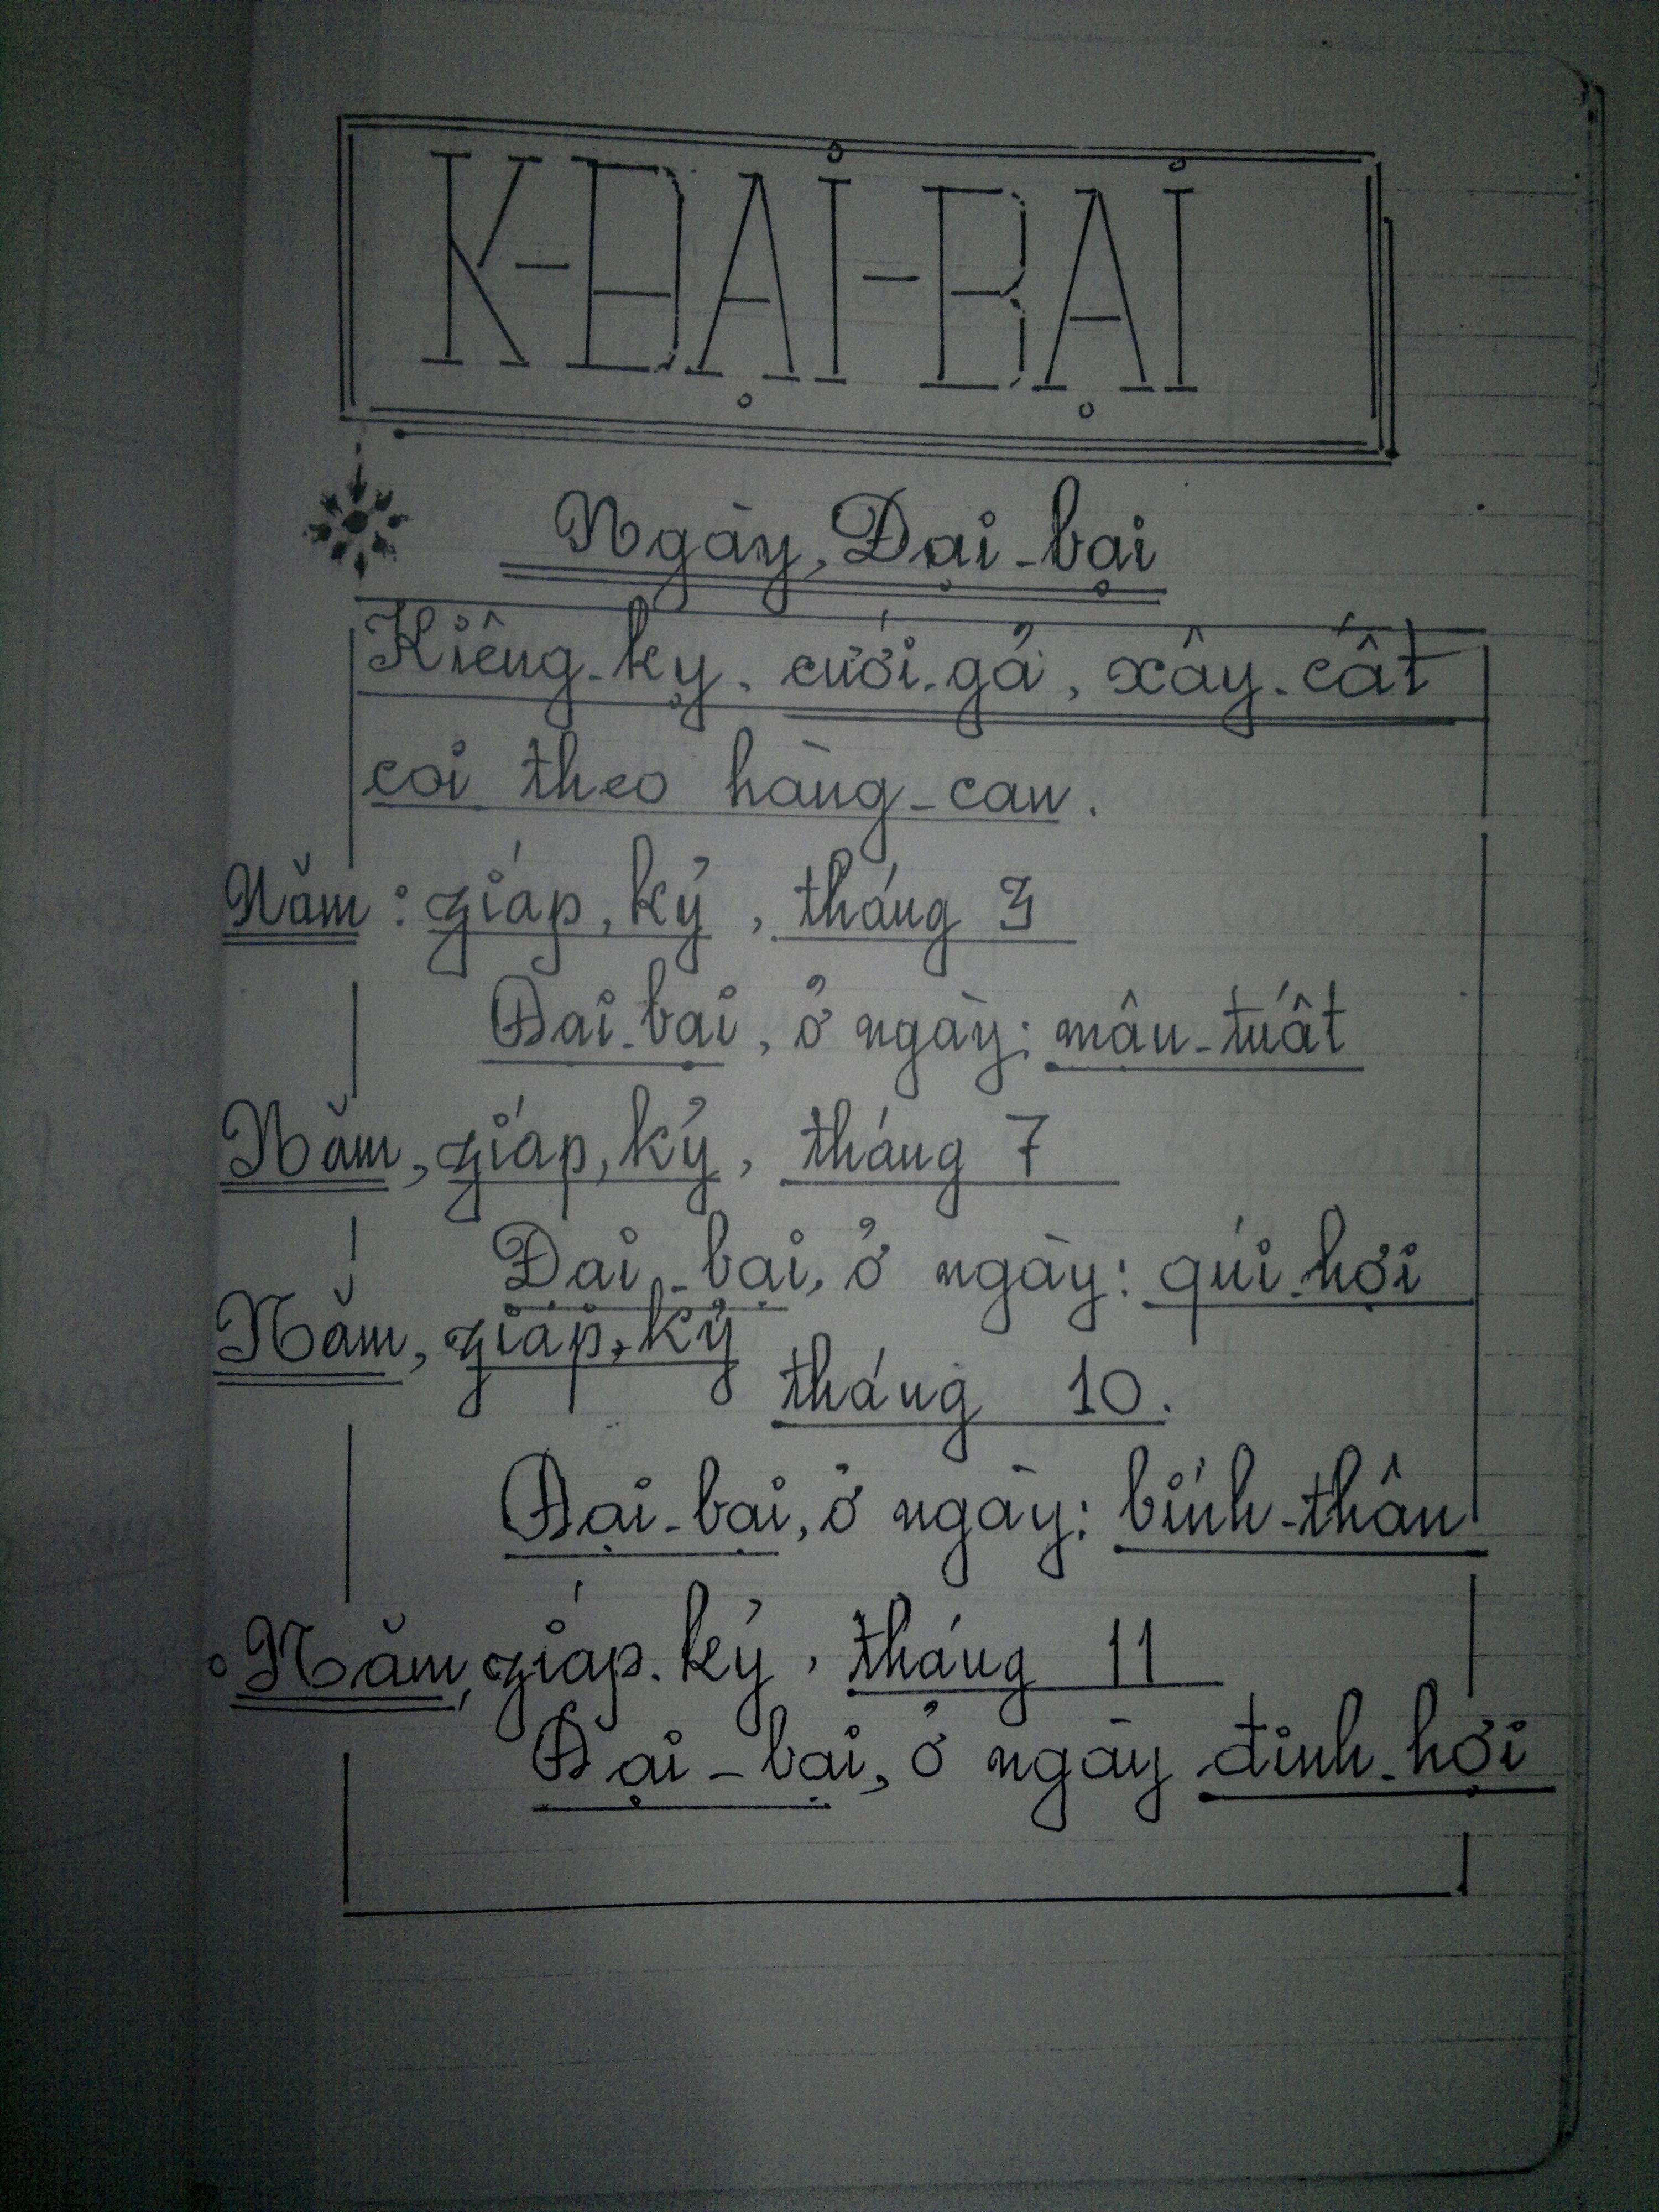 K-ĐẠI-BẠI
Ngày, Đại-bại
Kiêng-kỵ, cưới-gả, xây-cất
coi theo hàng-can.
Năm: giáp, kỷ, tháng 3
Đại-bại, ở ngày: mậu-tuất
Năm, giáp, kỷ, tháng 7
Đại-bại, ở ngày: quí-hợi
Năm, giáp, kỷ
tháng 10.
Đại-bại, ở ngày: bính-thân
Năm, giáp-kỷ, tháng 11
Đại-bại, ở ngày đinh-hợi